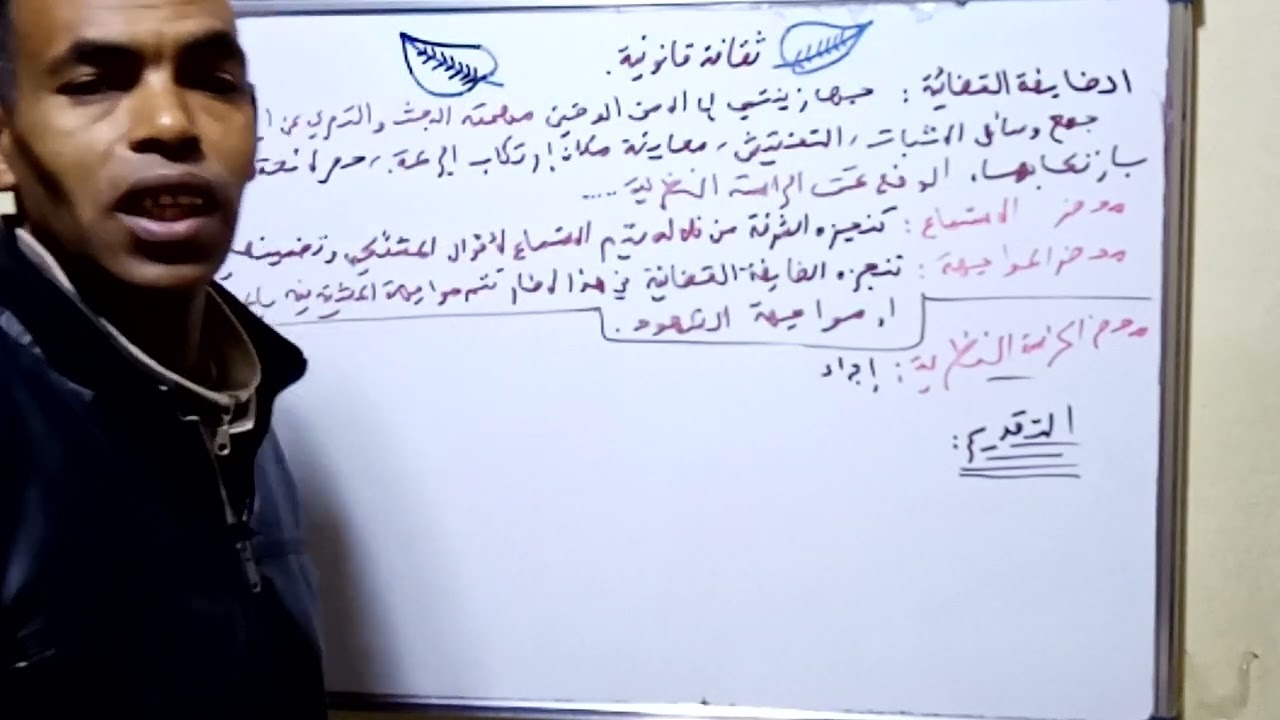 ثقافة قانونية.
الضابطة القضائية : جهاز ينتمي الى الامن الوطني مهمته البحث والتحري عن
جمع وسائل الاثبات، التفتيش، معاينة مكان ارتكاب الجريمة،
بارتكابها، الوضع تحت الحراسة النظرية.....
محضر الاستماع : تنجزه الشرطة من خلاله يتم الاستماع لأقوال المشتكي
محضر المواجهة : تنجزه الضابطة القضائية في هذا الاطار تتم مواجهة المشتبه فيه
او مواجهة الشهود.
محضر الحراسة النظرية : إجراء
التقديم :